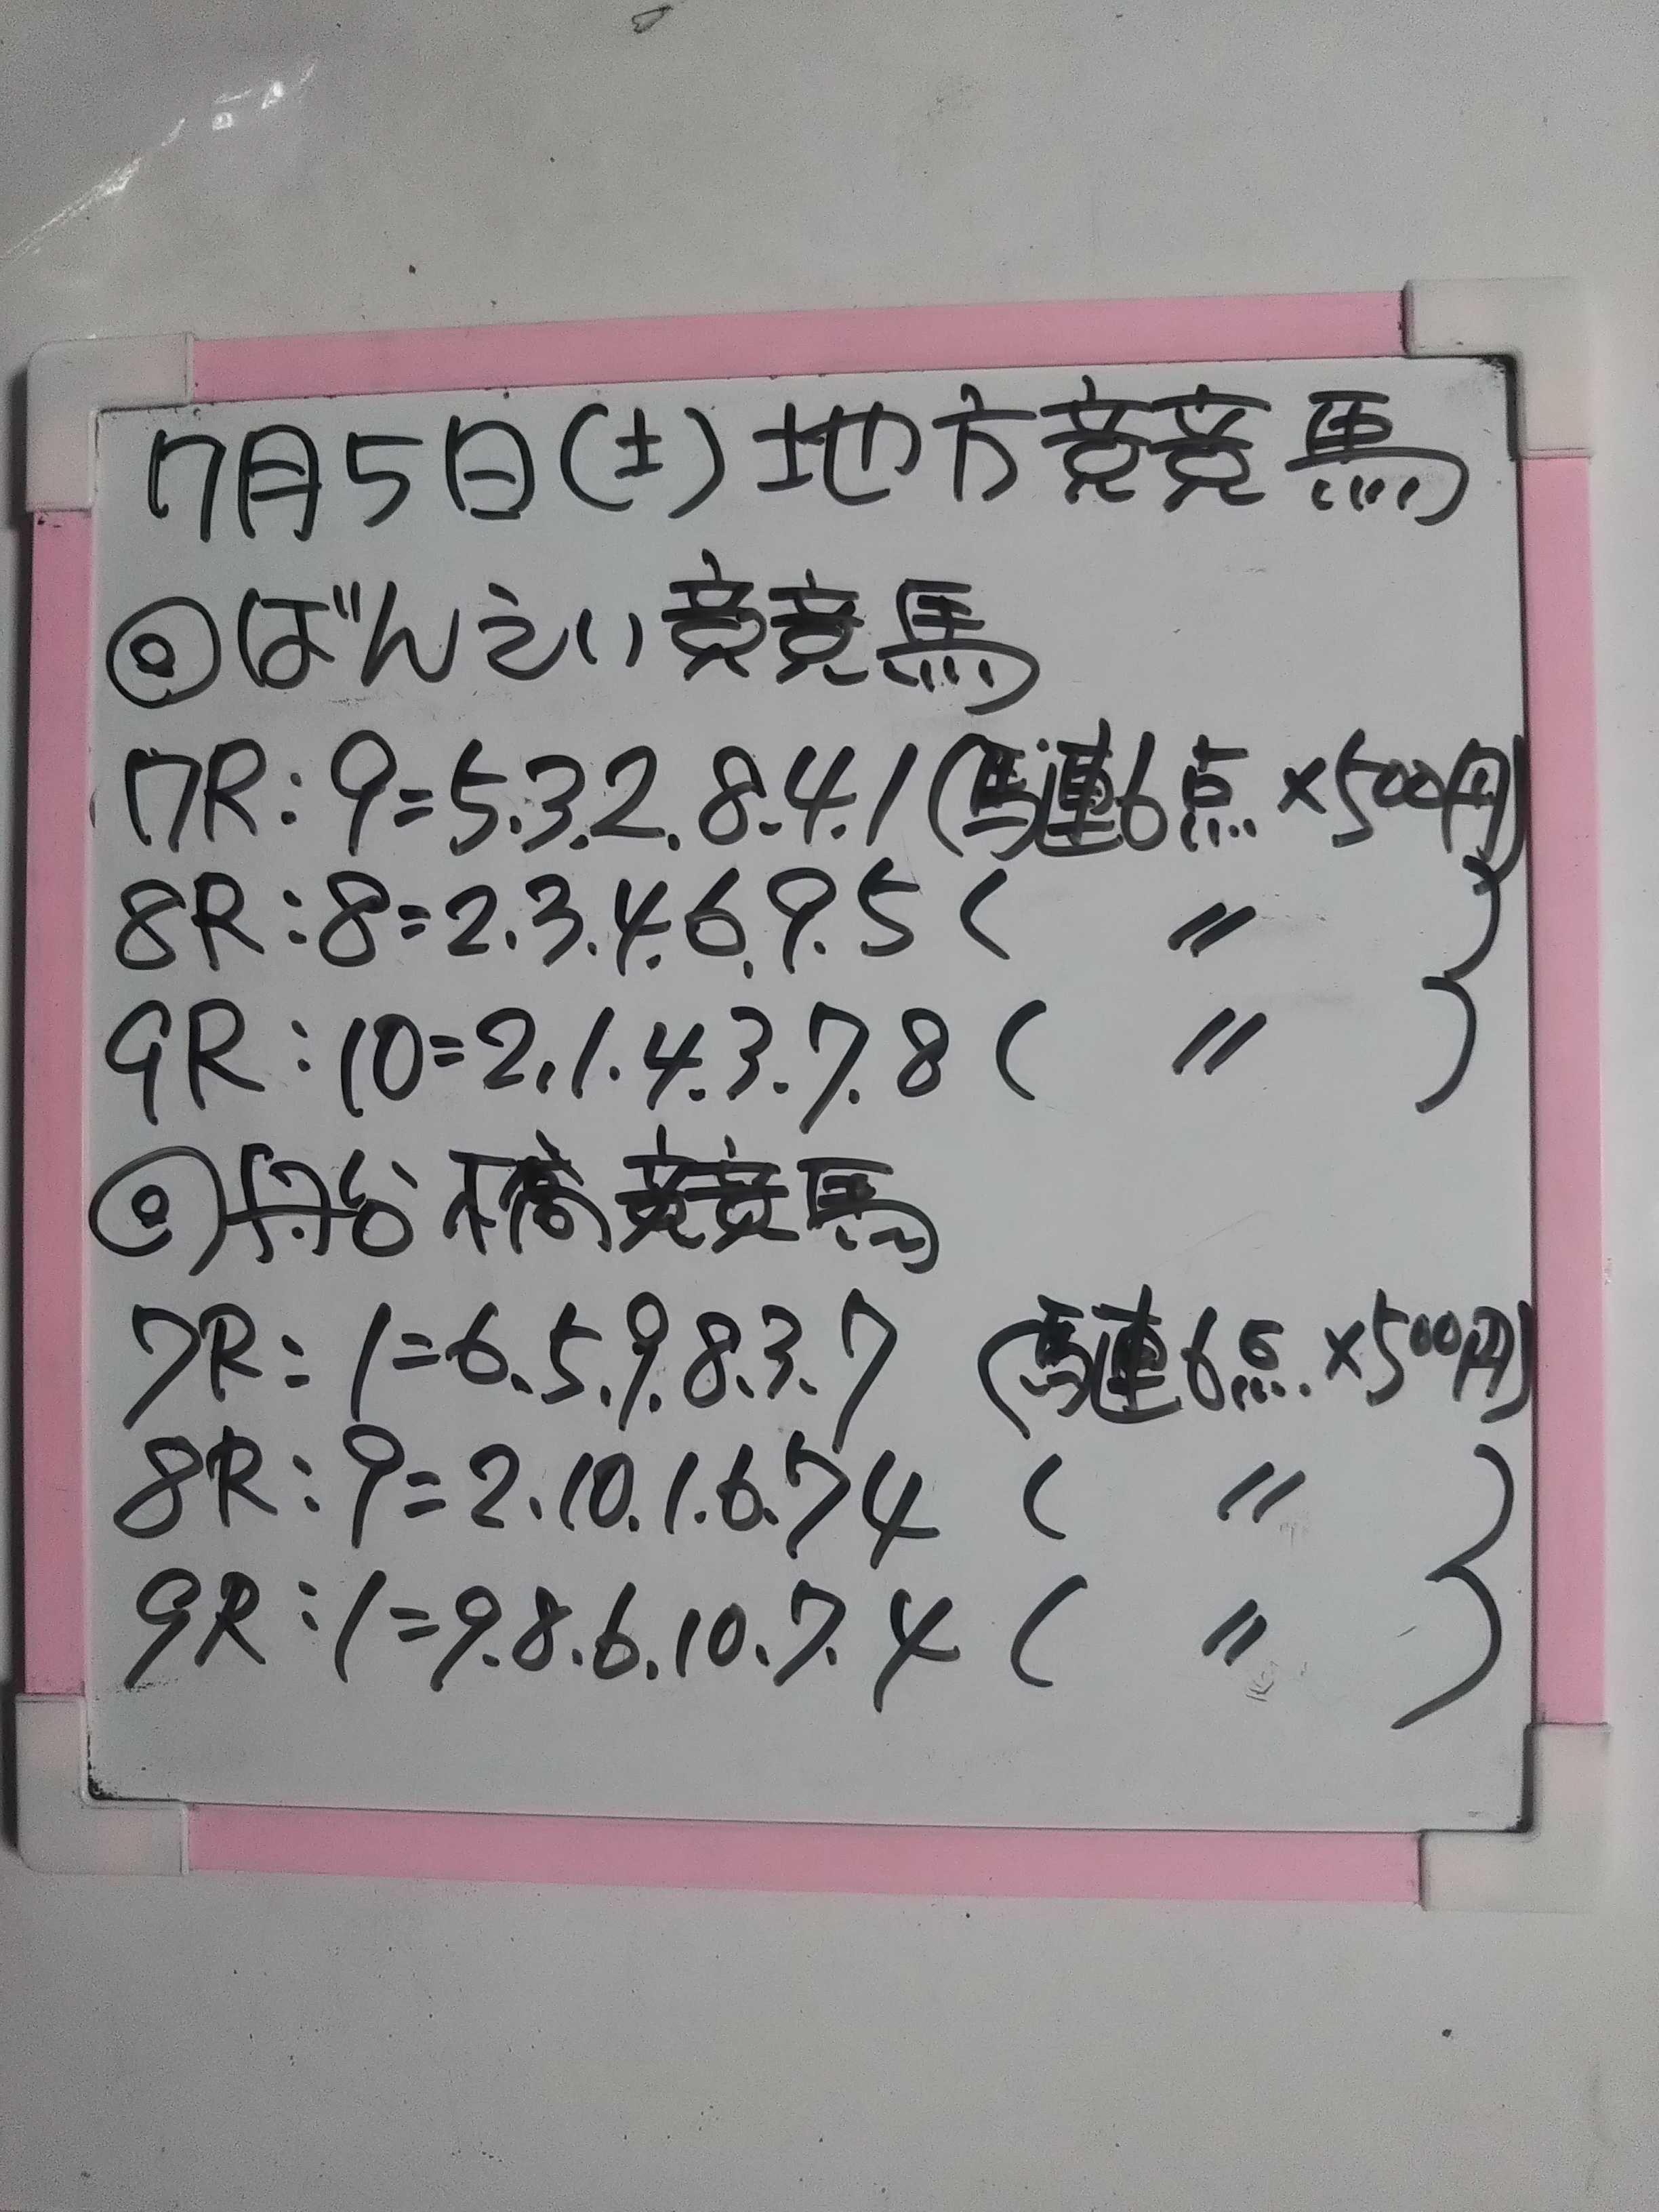 7月5日(土)地方競馬
◎ばんえい競馬
7R:9=5.3.2.8.4.1(馬連6点×500円)
8R:8=2.3.4.6.9.5(〃)
9R:10=2.1.4.3.7.8(〃)
◎舟合橋競馬
7R:1=6.5.9.8.3.7(馬連6点.×500円)
8R:9=2.10.1.6.7.4(〃)
9R:1=9.8.6.10.7.4(〃)